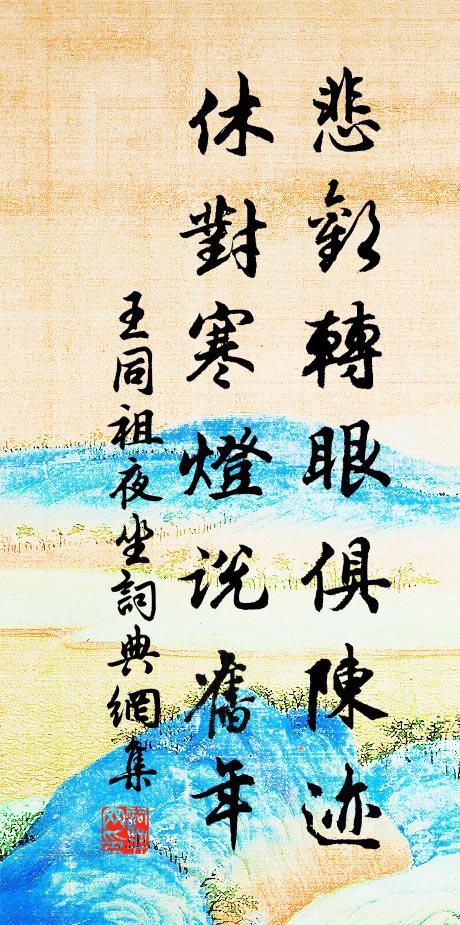 悲歡轉眼俱陳迹
休對寒燈說舊年
王同祖夜坐詞典網集